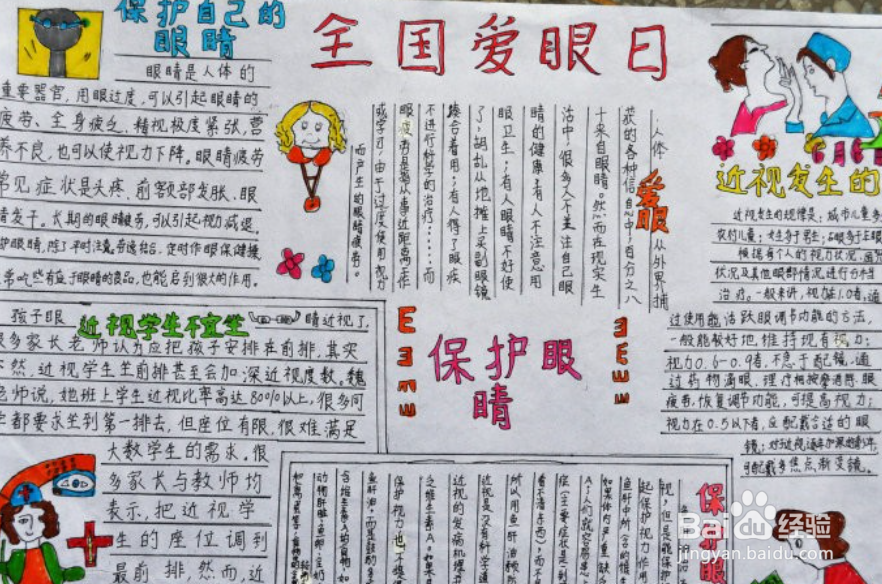 保护自己的
眼睛
眼睛是人体的
重要器官，用眼过度，可以引起眼睛的
疲劳、全身疲乏，精视极度紧张，营
养不良，也可以使视力下降。眼睛疲劳
常见症状是头疼、前额部发胀、眼
睛发干。长期的眼睛疲劳，可以引起视力减退。
护眼睛，除了平时注意劳逸结合，定时作眼保健操，
常吃些有益于眼睛的食品，也能起到很大的作用。
全国爱眼日
人体
爱眼
从外界捕
获的各种信息中，百分之八
十来自眼睛。然而在现实生
活中，很多人不关注自己眼
睛的健康，有人不注意用
眼卫生；有人眼睛不好使
了，胡乱从地摊上买副眼镜
凑合着用；有人得了眼疾
不进行科学的治疗……而
眼疲劳是因从事近距离工作
或学习，由于过度使用视力
而产生的眼睛疲劳。
6月6日
近视发生的
近视发生的规律是：城市儿童多
农村儿童；女生多于男生；
根据每个人的视力状况
状况及其他眼部情况进行分析
治疗。一般来讲，视力在1.0者，通
过使用能活跃眼调节功能的方法，
一般能较好地维持现有视力；
视力0.6-0.9者，不急于配镜，通
过药物滴眼、理疗和按摩消除眼
疲劳，恢复调节功能，可提高视力；
视力在0.5以下者，应配戴合适的眼
镜；对近视逐年加深的青少年，
可配戴多焦点渐变镜。
近视学生不宜坐
孩子眼
睛近视了，
很多家长老师认为应把孩子安排在前排，其实
不然，近视学生坐前排甚至会加深近视度数，魏
老师说，她班上学生近视比率高达80%以上，很多同
学都要求坐到第一排去，但座位有限，很难满足
大数学生的需求。很
多家长与教师均
表示，把近视学
生的座位调到
最前排，然而，近
保护眼
睛
保护眼
起保护视力作用
鱼肝中所含的维生
如果体内严重缺乏
看不清东西)，而不
所以用鱼肝油预防
近视是没有科学道
近视的发病机理
之维生素A。如果
保护视力也不
鱼肝油，而是鼓励多
含维生素A的食物，如
动物肝脏、鱼卵、全奶
Baidu经验
jingyan.baidu.com